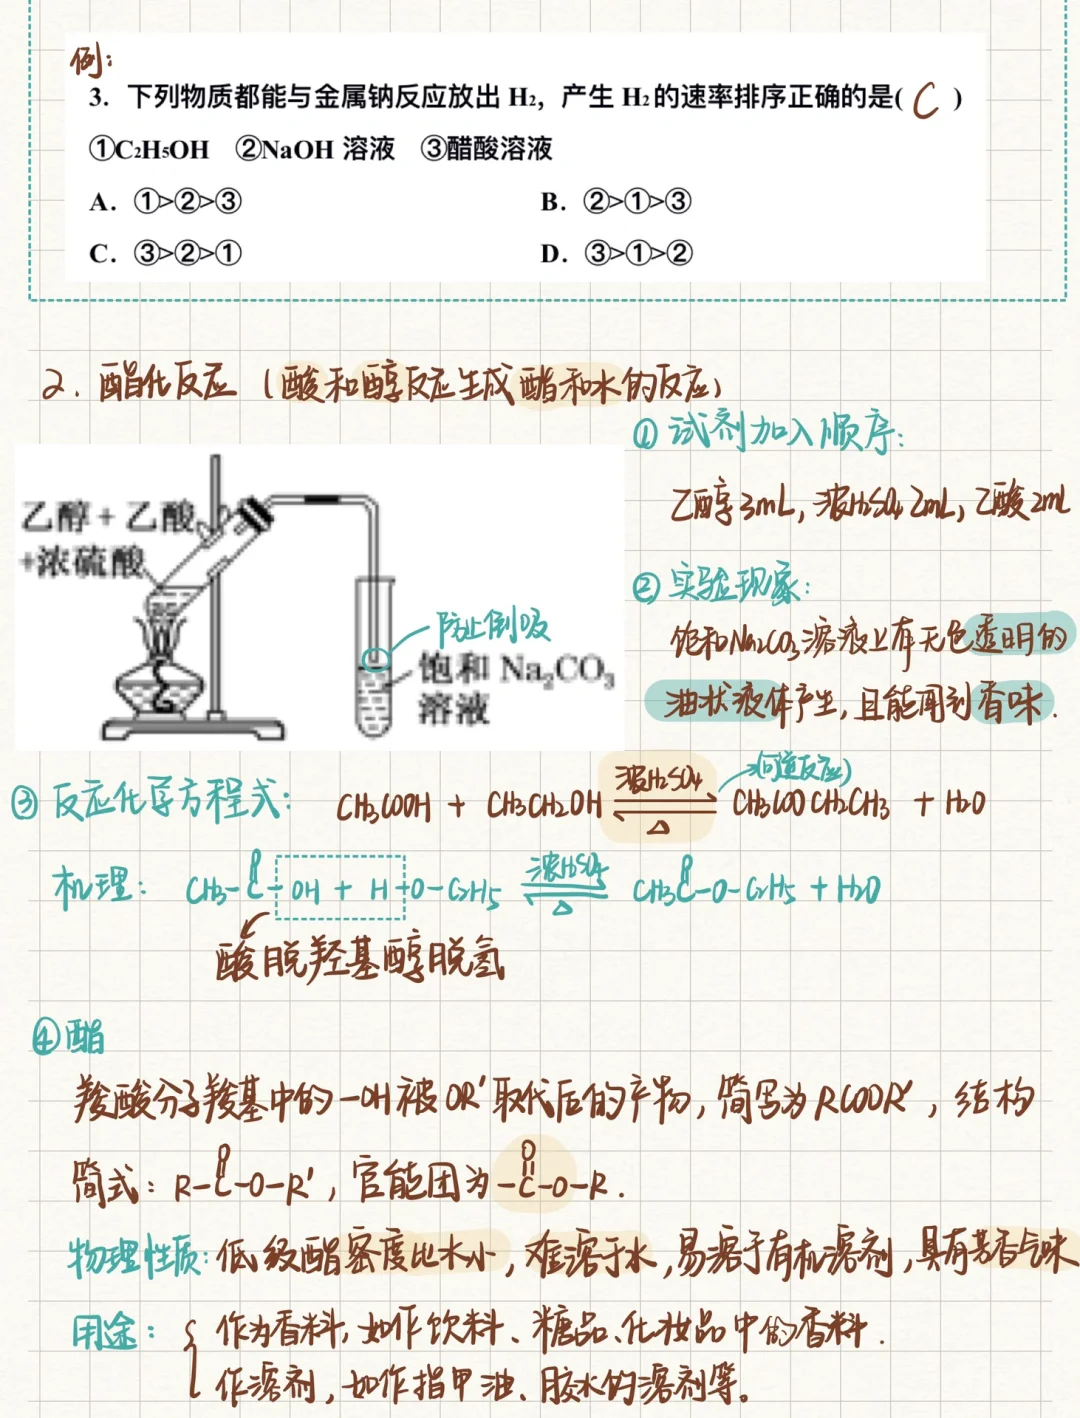 例:
3. 下列物质都能与金属钠反应放出 H₂，产生 H₂ 的速率排序正确的是( C )
①C₂H₅OH ②NaOH 溶液 ③醋酸溶液
A. ①>②>③ B. ②>①>③
C. ③>②>① D. ③>①>②
2. 酯化反应 (酸和醇反应生成酯和水的反应)
① 试剂加入顺序:
乙醇3mL, 浓H₂SO₄ 2mL, 乙酸2mL
乙醇+乙酸
+浓硫酸
② 实验现象:
防止倒吸
饱和Na₂CO₃溶液上有无色透明的
饱和 Na₂CO₃
溶液
油状液体产生, 且能闻到香味.
③ 反应化学方程式: CH₃COOH + CH₃CH₂OH ⇌ CH₃COOCH₂CH₃ + H₂O
浓H₂SO₄
△
(可逆反应)
机理: CH₃-C(=O)-OH + H-O-C₂H₅ ⇌ CH₃C(=O)-O-C₂H₅ + H₂O
浓H₂SO₄
△
酸脱羟基醇脱氢
④酯
羧酸分子羧基中的-OH被OR'取代后的产物, 简写为RCOOR', 结构
简式: R-C(=O)-O-R', 官能团为-C(=O)-O-R.
物理性质: 低级酯密度比水小, 难溶于水, 易溶于有机溶剂, 具有芳香气味
用途: { 作为香料, 如作饮料、糖品、化妆品中的香料.
作溶剂, 如作指甲油、胶水的溶剂等。